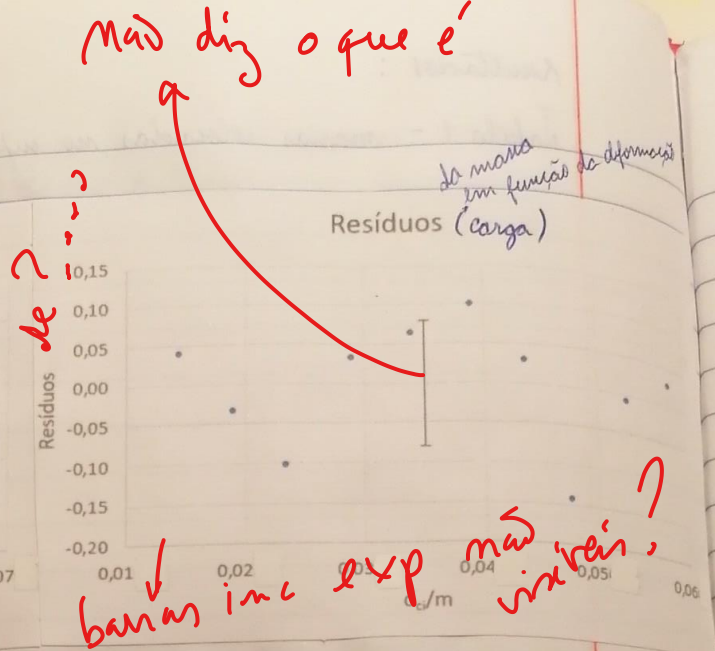 não diz o que é
da massa
em função da deformação
Resíduos (carga)
de ?
0,15
0,10
0,05
0,00
-0,05
-0,10
-0,15
-0,20
Resíduos
07
0,01
0,02
0,03
0,04
0,05
0,06
/m
barras inc exp não visíveis?